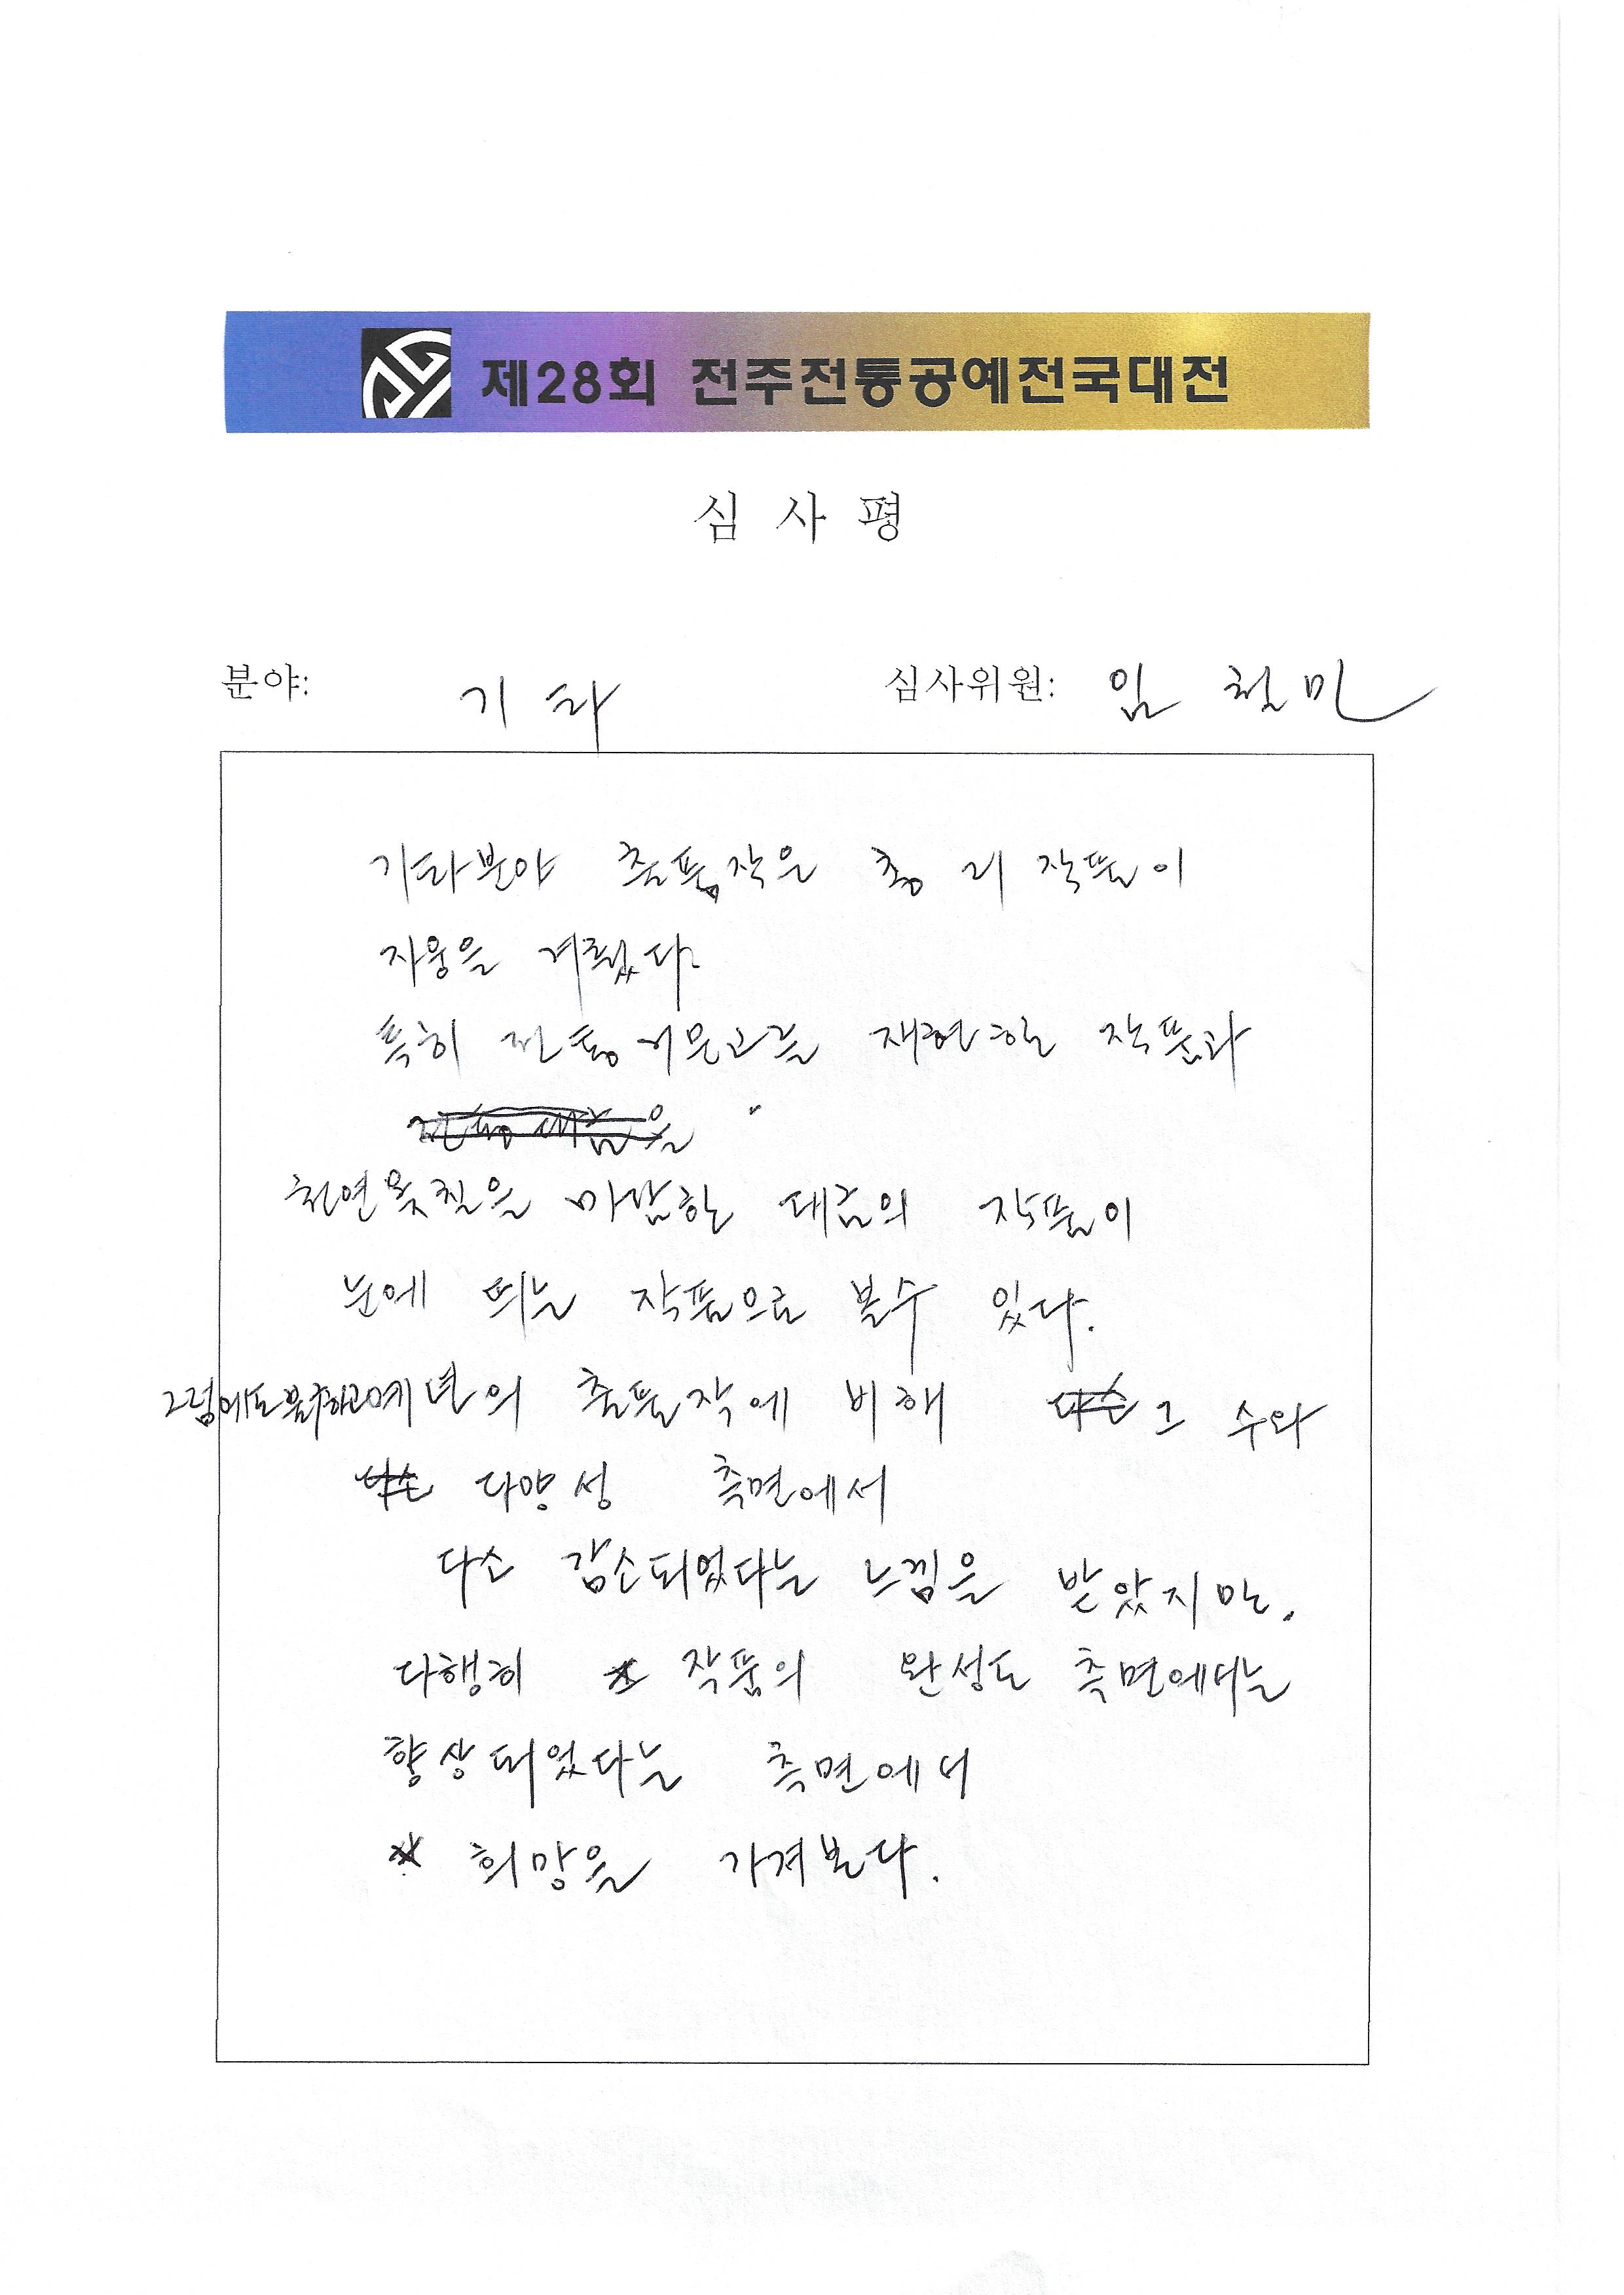 제28회 전주전통공예전국대전
심 사 평
분야: 기타 심사위원: 임 철민
기타분야 출품작은 총 21 작품이
자웅을 겨뤘다.
특히 전통거문고를 재현한 작품과
천연옻칠을 마감한 대금의 작품이
눈에 띄는 작품으로 볼수 있다.
그럼에도 불구하고 예년의 출품작에 비해 그 수와
다양성 측면에서
다소 감소되었다는 느낌을 받았지만.
다행히 작품의 완성도 측면에서는
향상되었다는 측면에서
희망을 가져본다.